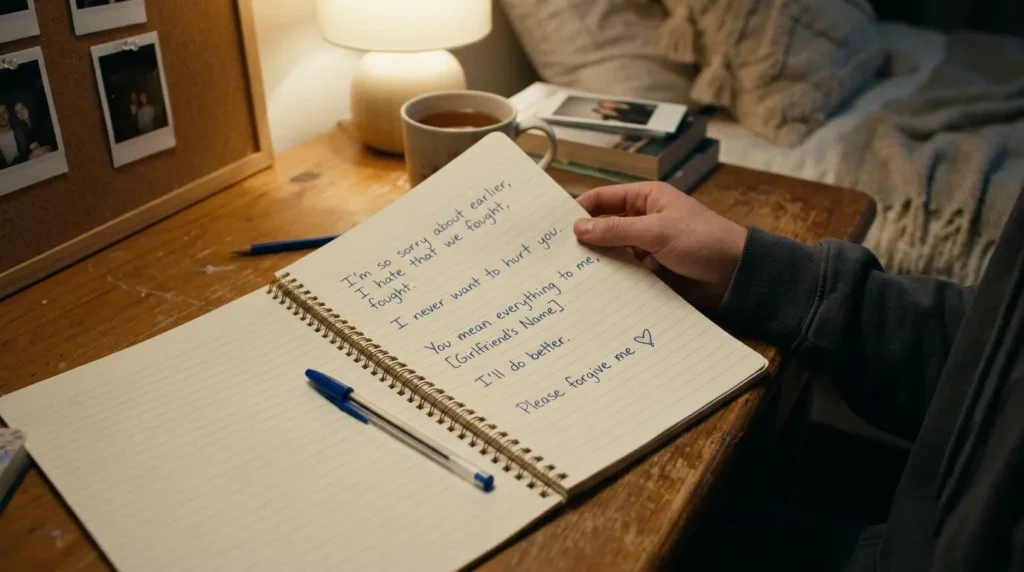 I'm so sorry about earlier,
I hate that we fought,
fought.
I never want to hurt you.
You mean everything to me,
[Girlfriend's Name]
I'll do better.
Please forgive me ♡